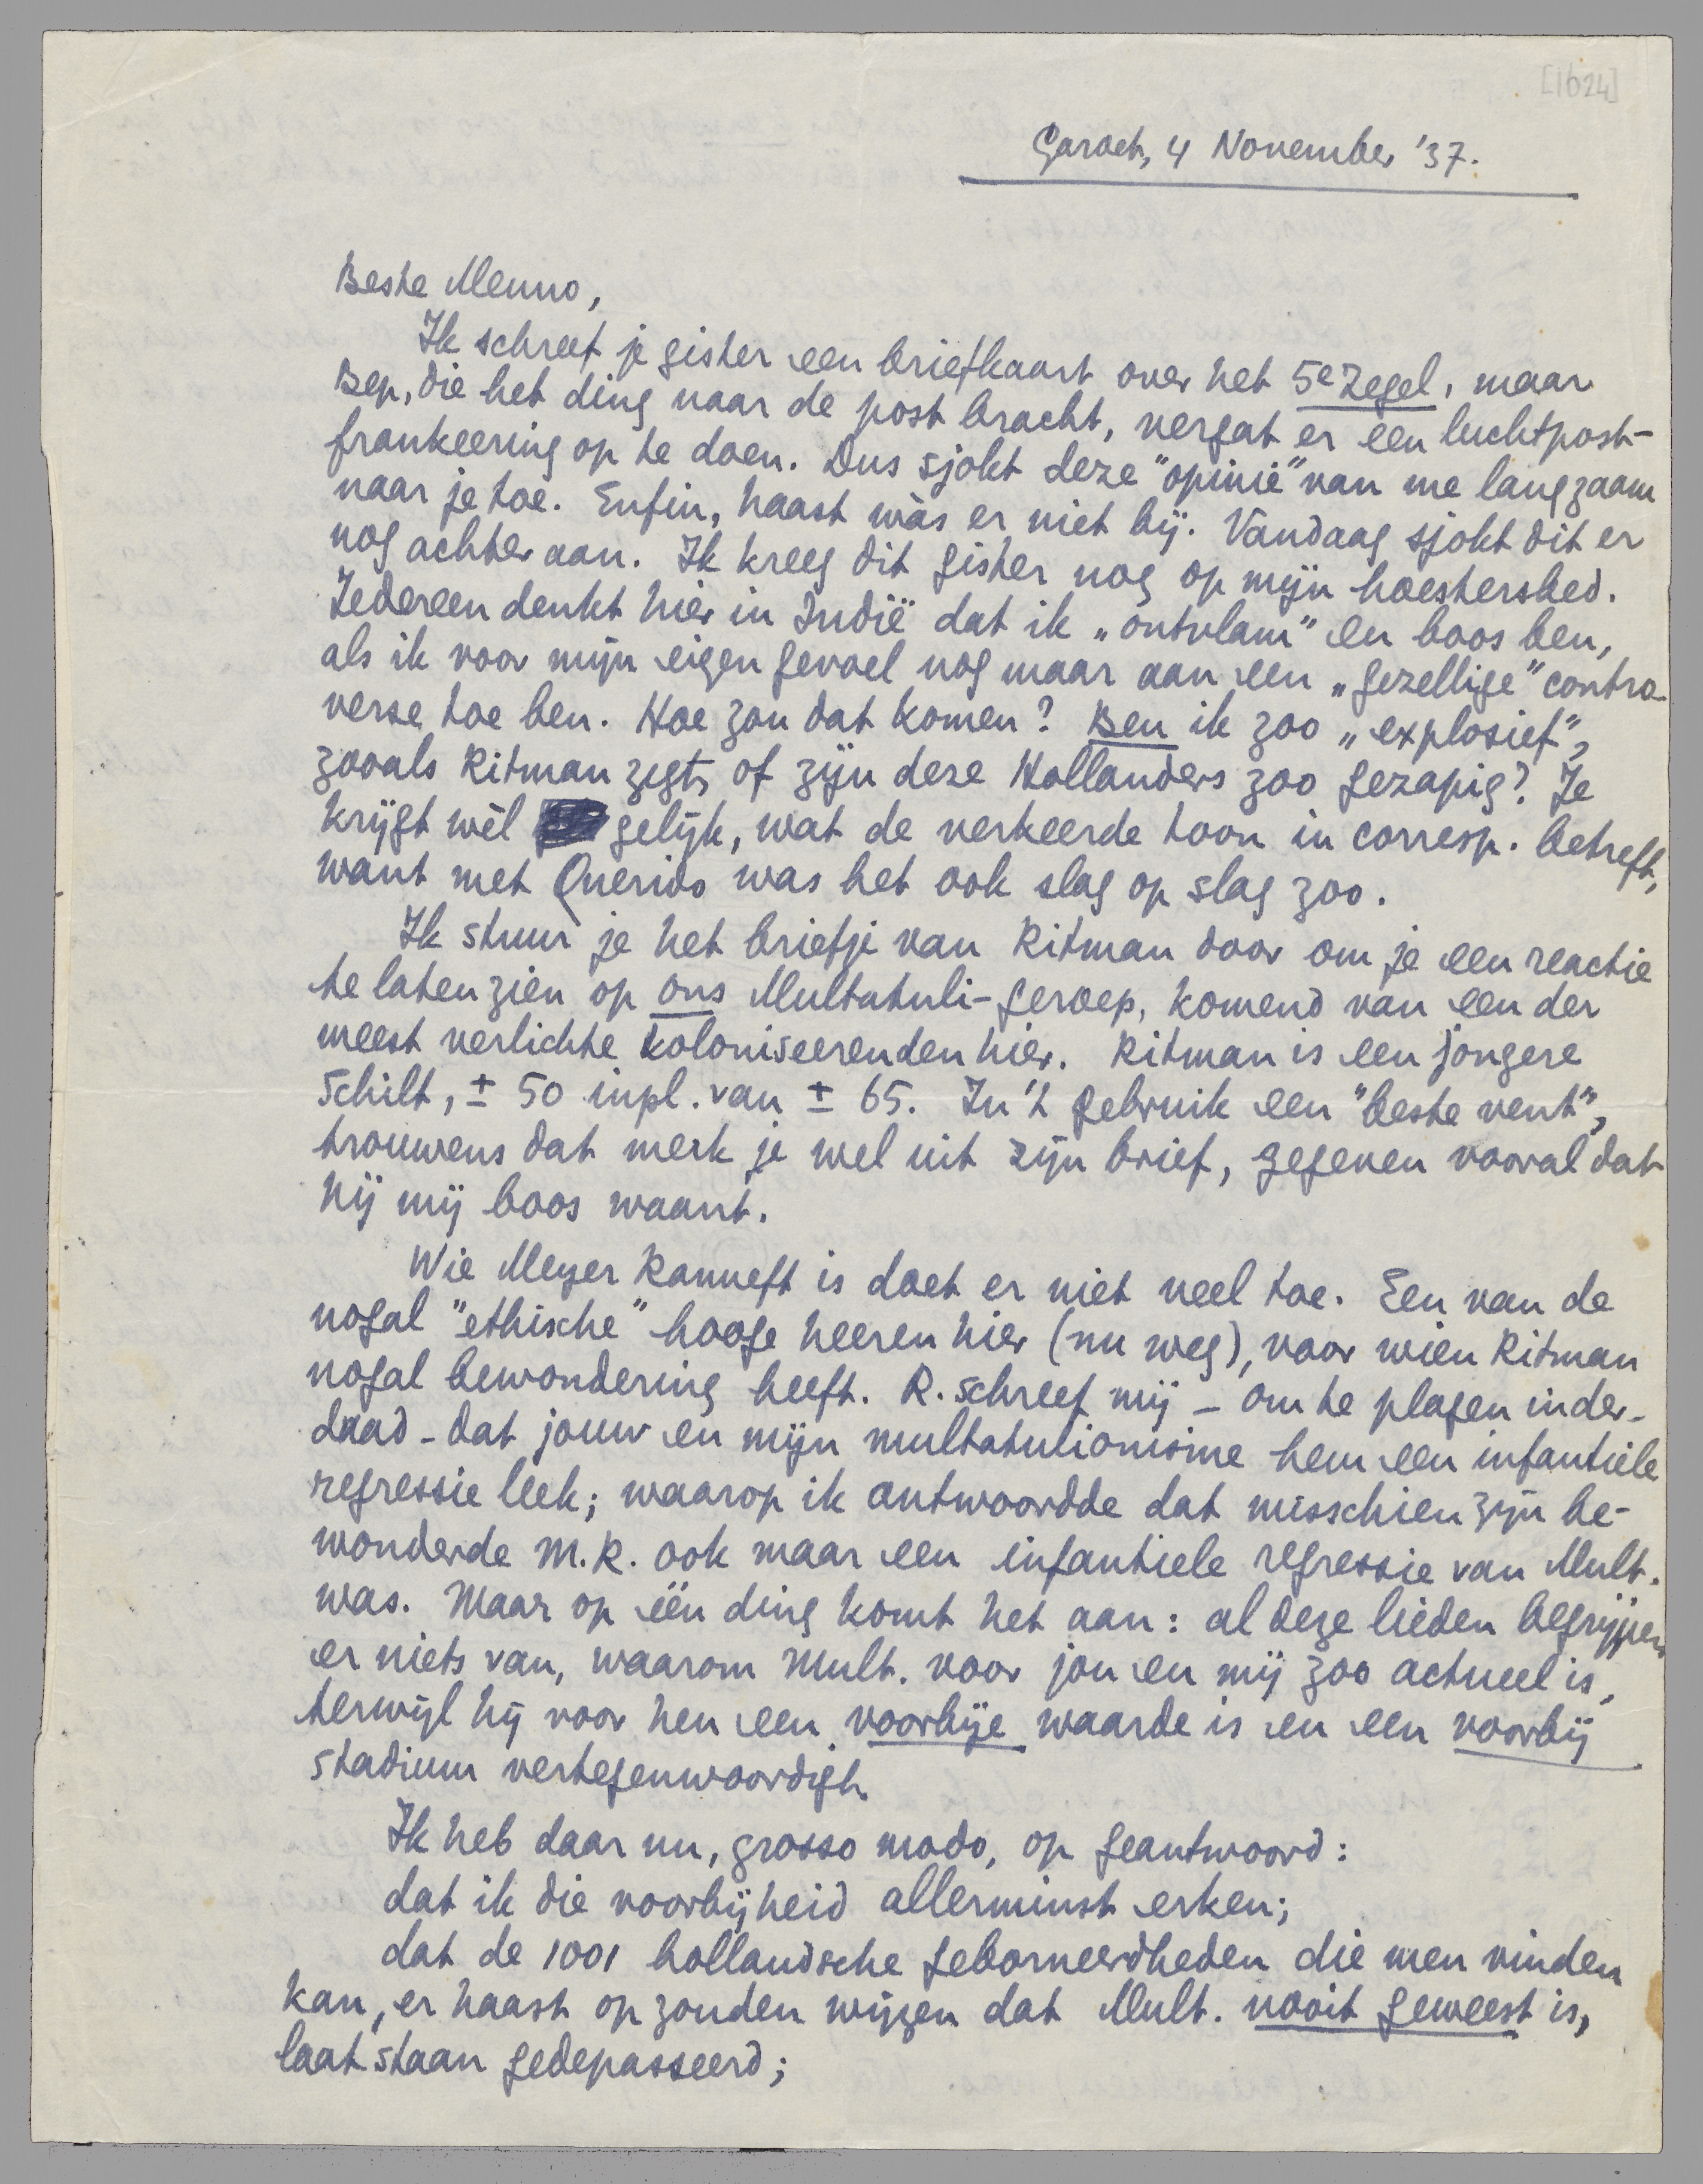 [1624]
Garoet, 4 November '37.
Beste Menno,
Ik schreef je gister een briefkaart over het 5e Zegel, maar
Bep, die het ding naar de post bracht, vergat er een luchtpost-
frankeering op te doen. Dus sjokt deze "opinie" van me langzaam
naar je toe. Enfin, haast wàs er niet bij. Vandaag sjokt dit er
nog achter aan. Ik kreeg dit gister nog op mijn hoestersbed.
Iedereen denkt hier in Indië dat ik „ontvlam" en boos ben,
als ik voor mijn eigen gevoel nog maar aan een „gezellige" contro-
verse toe ben. Hoe zou dat komen? Ben ik zoo „explosief",
zooals Ritman zegt, of zijn deze Hollanders zoo gezapig? Je
krijgt wèl gelijk, wat de verkeerde toon in corresp. betreft,
want met Querido was het ook slag op slag zoo.
Ik stuur je het briefje van Ritman door om je een reactie
te laten zien op ons Multatuli-geroep, komend van een der
meest verlichte koloniseerenden hier. Ritman is een jongere
Schilt, ± 50 inpl. van ± 65. In 't gebruik een "beste vent",
trouwens dat merk je wel uit zijn brief, gegeven vooral dat
hij mij boos waant.
Wie Meyer Ranneft is doet er niet veel toe. Een van de
nogal "ethische" hooge heeren hier (nu weg), voor wien Ritman
nogal bewondering heeft. R. schreef mij – om te plagen inder-
daad – dat jouw en mijn multatulionisme hem een infantiele
regressie leek; waarop ik antwoordde dat misschien zijn be-
wonderde M.R. ook maar een infantiele regressie van Mult.
was. Maar op één ding komt het aan: al deze lieden begrijpen
er niets van, waarom Mult. voor jou en mij zoo actueel is,
terwijl hij voor hen een voorbije waarde is en een voorbij
stadium vertegenwoordigt.
Ik heb daar nu, grosso modo, op geantwoord:
dat ik die voorbijheid allerminst erken;
dat de 1001 hollandsche geborneerdheden die men vinden
kan, er haast op zouden wijzen dat Mult. nooit geweest is,
laat staan gedepasseerd;